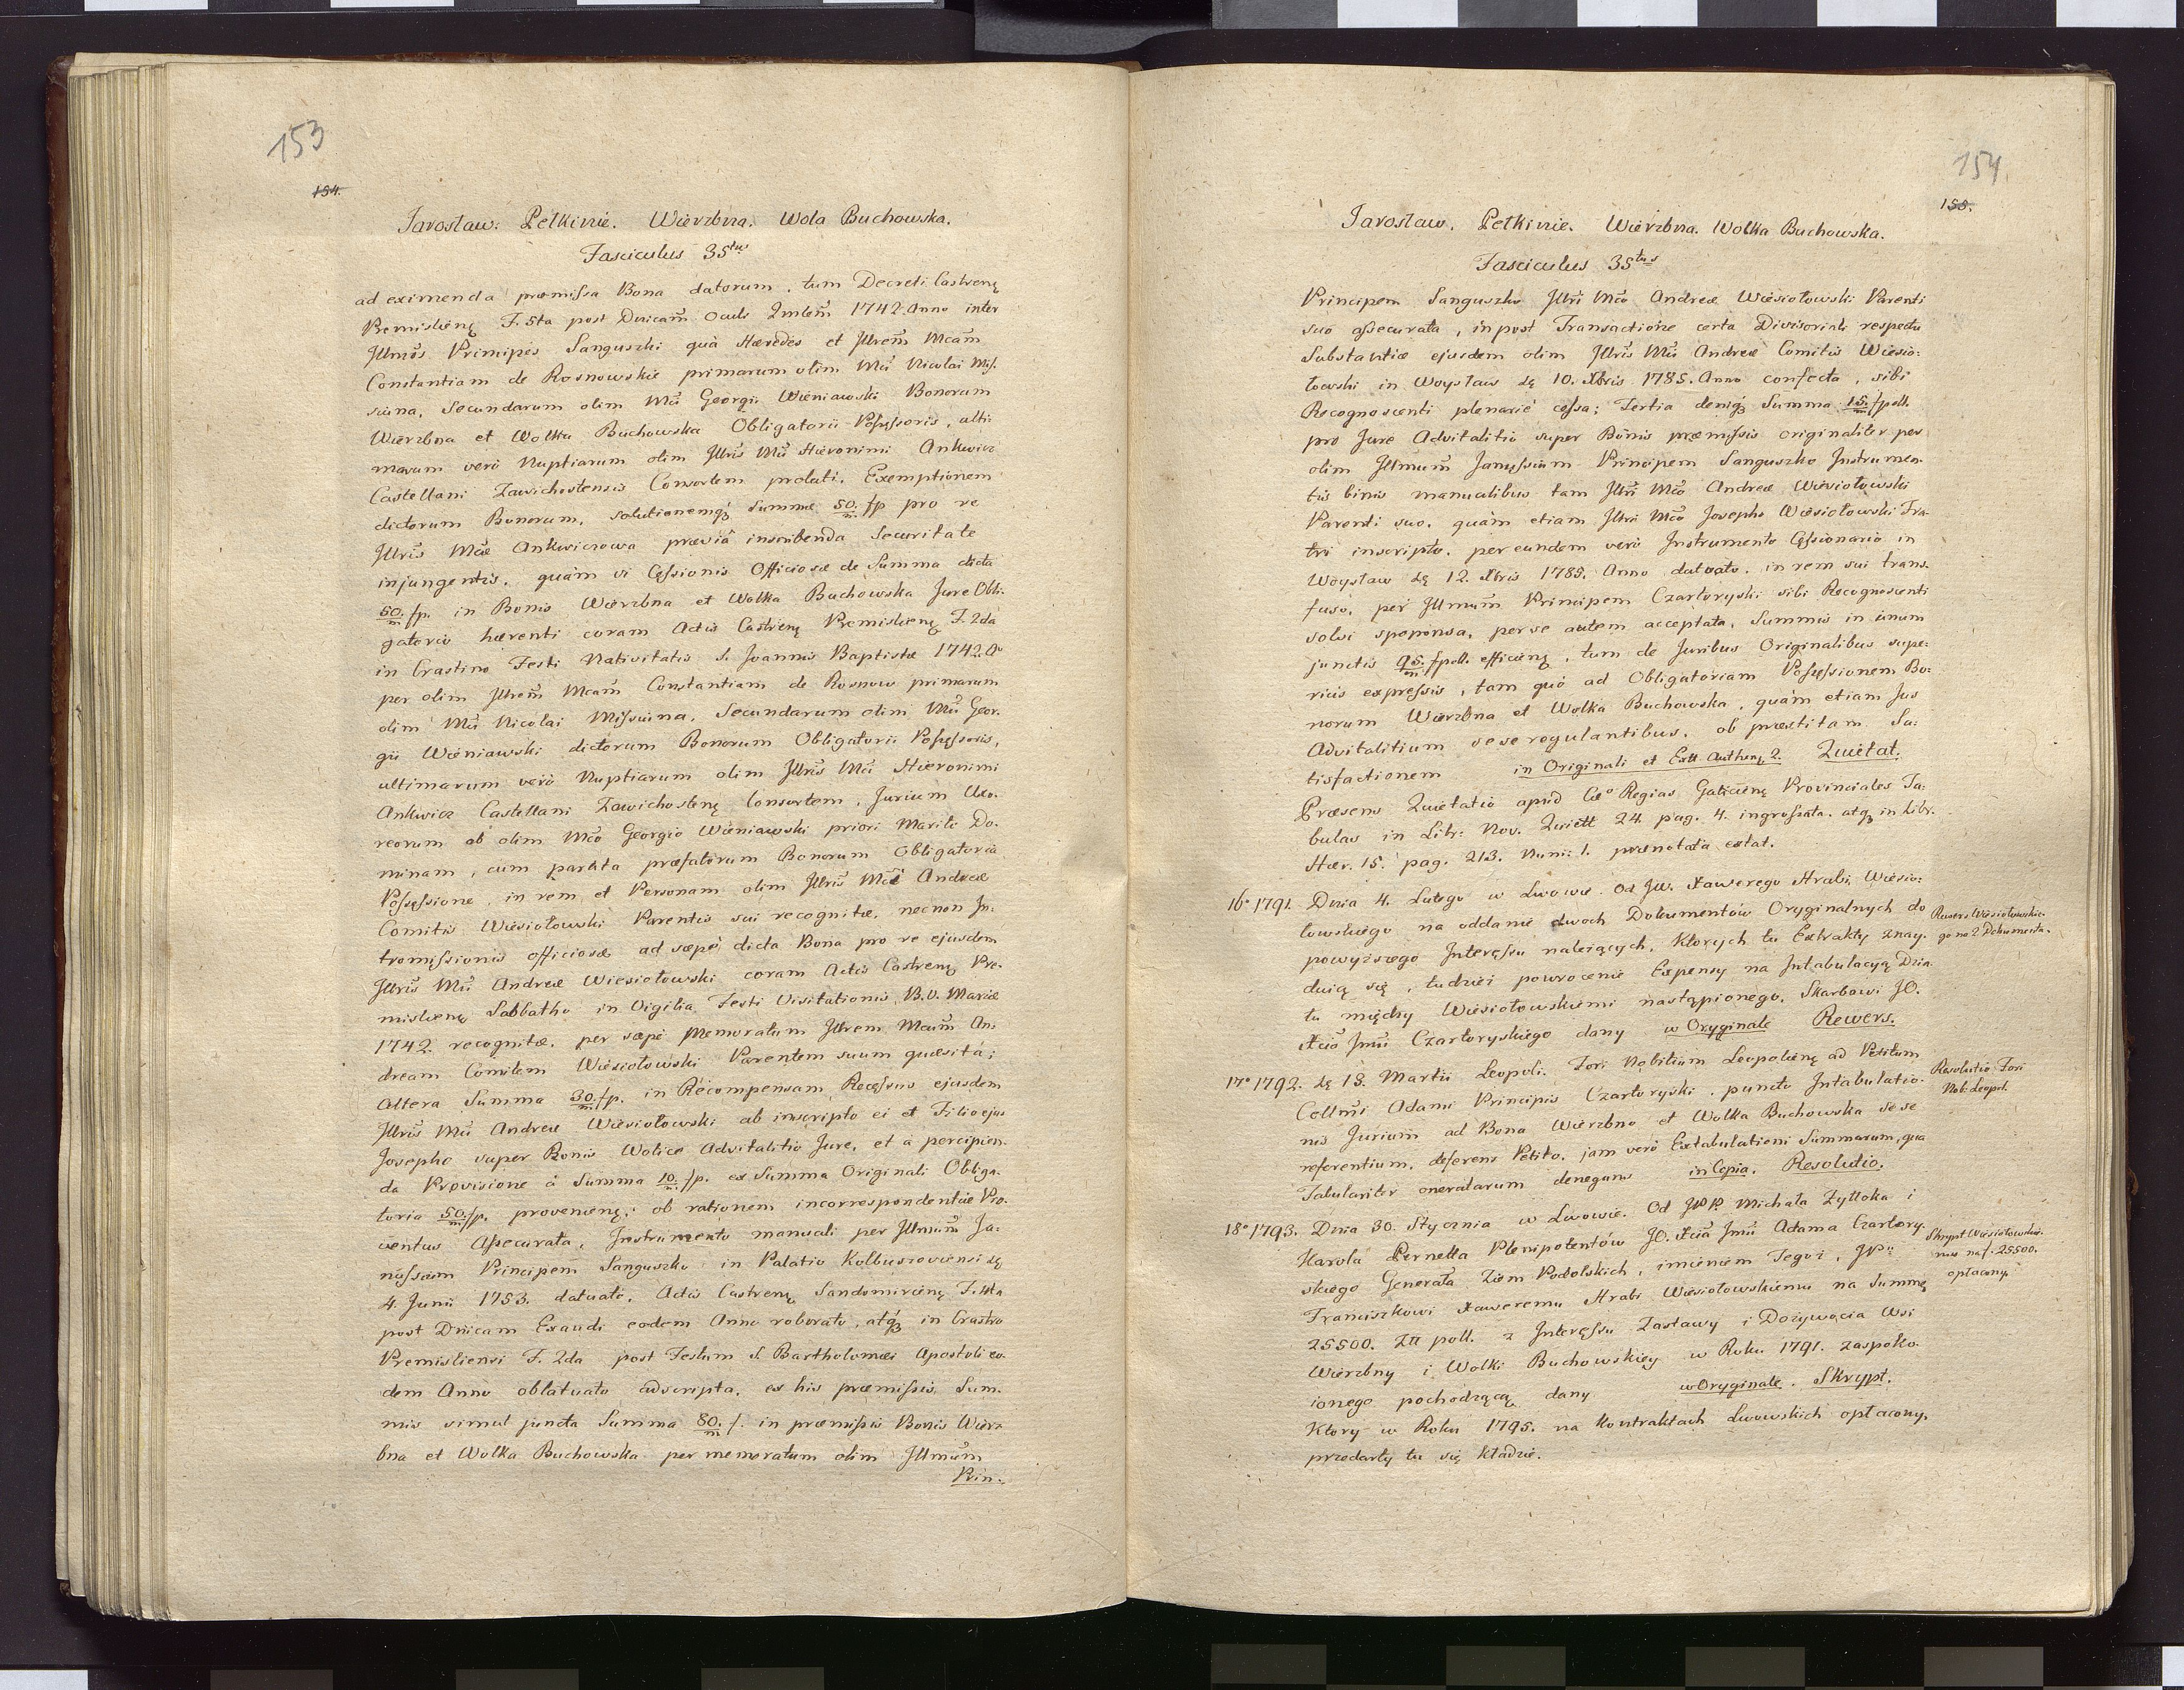 153
154.
Jarosław: Pełkinie. Wierzbna. Wola Buchowska.
Fasciculus 35tus
ad eximenda præmissa Bona datorum, tum Decreti Castrenę
Premislienę F. 5ta post Dnicam̃ Oculi Qmlem̃ 1742. Anno inter
Jllmos Principes Sanguszki quà Hæredes et Jllrem̃ Mcam̃
Constantiam de Rosnowskie primarum olim Mci Nicolai Mis.
siuna, Secundarum olim Mci Georgii Wieniawski Bonorum
Wierzbna et Wolka Buchowska Obligatorii Possessoris, ulti:
marum verò Nuptiarum olim Jllris Mci Hieronimi Ankwicz
Castellani Zawichostensis Consortem prolati. Exemptionem
dictorum Bonorum, solutionemq́ Summæ 50./m fp pro re
Jllris Mcæ Ankwiczowa præviâ inscribenda Securitate
injungentis, quàm vi Cessionis Officiosæ de Summa dicta
50./m fp. in Bonis Wierzbna et Wolka Buchowska Jure Obli.
gatorio hærenti coram Actis Castrenę Premislienę F. 2da
in Crastino Festi Nativitatis S. Joannis Baptistæ 1742. Aº
per olim Jllrem̃ Mcam̃ Constantiam de Rosnow primarum
olim Mci Nicolai Missiuna, Secundarum olim Mci Geor.
gii Wieniawski dictorum Bonorum Obligatorii Possessoris,
ultimarum verò Nuptiarum olim Jllris Mci Hieronimi
Ankwicz Castellani Zawichostenę Consortem, Jurium Uxo.
reorum ab olim Mco Georgio Wieniawski priori Marito Do.
minam, cum parata præfatorum Bonorum Obligatoria
Possessione, in rem et Personam olim Jllris Mci Andreæ
Comitis Wiesiołowski Parentis sui recognitæ, necnon In:
tromissionis officiosæ ad sæpè dicta Bona pro re ejusdem
Jllris Mci Andreæ Wiesiołowski coram Actis Castrenę Pre.
mislienę Sabbatho in Vigilia Festi Visitationis B.V. Mariæ
1742. recognitæ, per sæpè memoratum Jllrem Mcum̃ An:
dream Comitem Wiesiołowski Parentem suum quæsita;
Altera Summa 30./m fp. in Recompensam Recessus ejusdem
Jllris Mci Andreæ Wiesiołowski ab inscripto ei et Filio ejus
Josepho super Bonis Wolica Advitalitio Jure, et à percipien.
da Provisione à Summa 10./m fp. ex Summa Originali Obliga.
toria 50./m fp. provenienę, ob rationem incorrespondentiæ Pro.
ventus Assecurata, Instrumento manuali per Jllmum̃ Ja:
nussium Principem Sanguszko in Palatio Kolbuszoviensi dę
4. Junii 1753. datuato, Actis Castrenę Sandomirienę F. 4ta
post Dnicam Exaudi eodem Anno roborato, atq́ in Castro
Premisliensi F. 2da post Festum S. Bartholomæi Apostoli eo.
dem Anno oblatuato adscripta, ex his præmissis Sum.
mis simul juncta Summa 80./m f. in præmissis Bonis Wierz
bna et Wolka Buchowska per memoratum olim Jllmum̃
Prin.
154
155.
Jarosław. Pełkinie. Wierzbna. Wolka Buchowska.
Fasciculus 35tus
Principem Sanguszko Jllri Mco Andreæ Wiesiołowski Parenti
suo assecurata, in post Transactione certa Divisoriali respectu
Substantiæ ejusdem olim Jllris Mci Andreæ Comitis Wiesio:
łowski in Woysław dę 10. Xbris 1785. Anno confecta, sibi
Recognoscenti plenariè cessa; Tertia deniq́ Summa 15./m fpoll.
pro Jure Advitalitio super Bonis præmissis originaliter per
olim Jllmum̃ Janussium Principem Sanguszko Instrumen.
tis binis manualibus tam Jllri Mco Andreæ Wiesiołowski
Parenti suo, quàm etiam Jllri Mco Josepho Wiesiołowski Fra.
tri inscripto, per eundem verò Instrumento Cessionario in
Woysław dę 12. Xbris 1785. Anno datuato, in rem sui trans.
fuso, per Jllmum̃ Principem Czartoryski sibi Recognoscenti
solvi spoponsa, per se autem acceptata, Summis in unum
junctis 95./m fpoll. efficienę, tum de Juribus Originalibus supe:
rius expressis, tam quò ad Obligatoriam Possessionem Bo:
norum Wierzbna et Wolka Buchowska, quàm etiam Jus
Advitalitium sese regulantibus, ob præstitam Sa:
tisfactionem in Originali et Extt Authenę 2. Quietat.
Præsens Quietatio apud Cæº Regias Galicienę Provinciales Ta:
bulas in Libr: Nov. Quiett 24. pag. 4. ingrossata, atq́ in Libr.
Hær. 15. pag. 213. Num: 1. prænotata extat.
16º 1791. Dnia 4. Lutego w Lwowie. Od JW. Xawerego Hrabi Wiesio:
łowskiego na oddanie dwoch Dokumentów Oryginalnych do
powyższego Interessu należących, których tu Extrakty znay.
duią się, tudzież powrócenie Expensy na Intabulacyą Dzia
łu między Wiesiołowskiemi nastąpionego, Skarbowi JO.
Xcia Jmci Czartoryskiego dany w Oryginale Rewers.
Rewers Wiesiołowskie.
go na 2 Dokumenta.
17º 1792. dę 13. Martii Leopoli. Fori Nobilium Leopolienę ad Petitum
Cellmi Adami Principis Czartoryski, puncto Intabulatio.
nis Jurium ad Bona Wierzbno et Wolka Buchowska sese
referentium, deferens Petito, jam verò Extabulationi Summarum, qua
Tabulariter oneratarum denegans in Copia. Resolutio.
Resolutio Fori
Nob: Leopol.
18º 1793. Dnia 30. Stycznia w Lwowie. Od JPP. Michała Zyttoka i
Karola Pernetta Plenipotentów JO. Xcia Jmci Adama Czartory.
skiego Generała Ziem Podolskich, imieniem Tegoż, JPu
Franciszkowi Xaweremu Hrabi Wiesiołowskiemu na Summę
25500. Złł poll. z Interessu Zastawy i Dożywocia Wsi
Wierzbny i Wolki Buchowskiey w Roku 1791. zaspoko.
ionego pochodzącą dany w Oryginale. Skrypt.
Ktory w Roku 1795. na Kontraktach Lwowskich opłacony,
przedarty tu się kładzie.
Skrypt Wiesiołowskie.
mu na f. 25500.
opłacony.